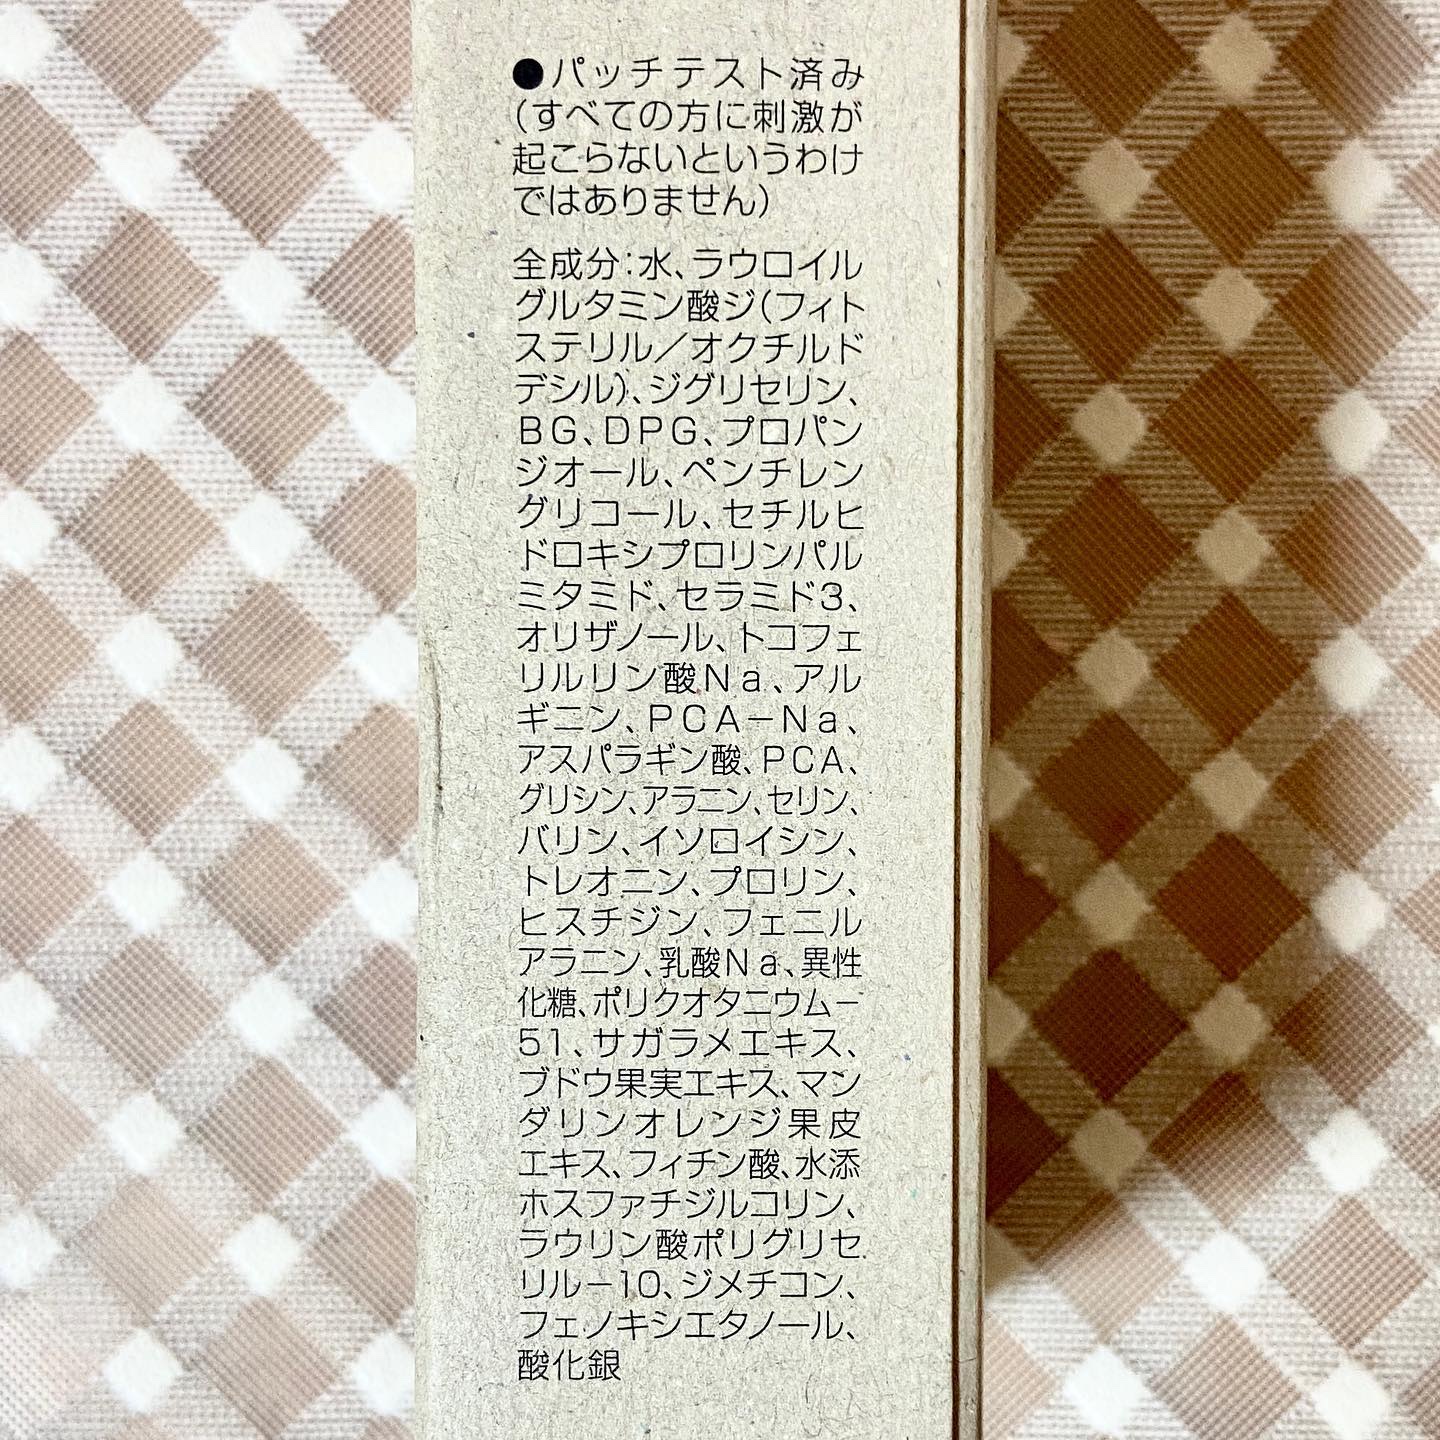 ●パッチテスト済み
(すべての方に刺激が
起こらないというわけ
ではありません)
全成分:水、ラウロイル
グルタミン酸ジ(フィト
ステリル/オクチルド
デシル)、ジグリセリン、
BG、DPG、プロパン
ジオール、ペンチレン
グリコール、セチルヒ
ドロキシプロリンパル
ミタミド、セラミド3、
オリザノール、トコフェ
リルリン酸Na、アル
ギニン、PCA-Na、
アスパラギン酸、PCA、
グリシン、アラニン、セリン、
バリン、イソロイシン、
トレオニン、プロリン、
ヒスチジン、フェニル
アラニン、乳酸Na、異性
化糖、ポリクオタニウム-
51、サガラメエキス、
ブドウ果実エキス、マン
ダリンオレンジ果皮
エキス、フィチン酸、水添
ホスファチジルコリン、
ラウリン酸ポリグリセ
リル-10、ジメチコン、
フェノキシエタノール、
酸化銀